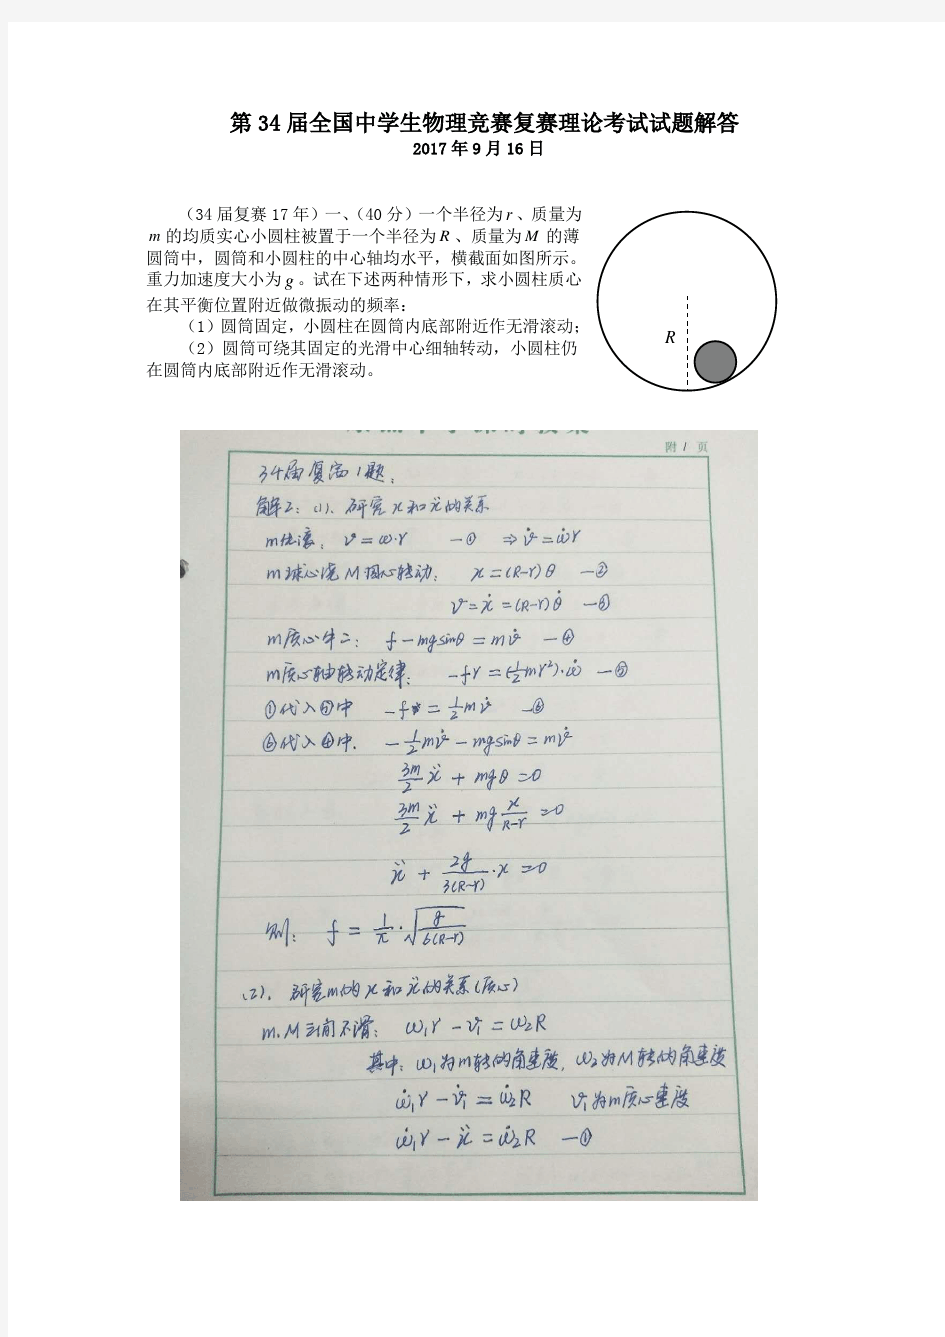 第34届全国中学生物理竞赛复赛理论考试试题解答
2017年9月16日
（34届复赛17年）一、（40分）一个半径为r、质量为
m的均质实心小圆柱被置于一个半径为R、质量为M的薄
圆筒中，圆筒和小圆柱的中心轴均水平，横截面如图所示。
重力加速度大小为g。试在下述两种情形下，求小圆柱质心
在其平衡位置附近做微振动的频率：
（1）圆筒固定，小圆柱在圆筒内底部附近作无滑滚动；
（2）圆筒可绕其固定的光滑中心细轴转动，小圆柱仍
在圆筒内底部附近作无滑滚动。
R
附 1 页
34届复赛1题：
解2：(1)、研究x和ẍ的关系
m纯滚：v=ω·r —① ⇒ v̇=ω̇r
m球心绕M圆心转动：x=(R-r)θ —②
v=ẋ=(R-r)θ̇ —③
m质心牛二：f-mgsinθ=mv̇ —④
m质心轴转动定律：-fr=(½mr²)·ω̇ —⑤
①代入⑤中 -f=½mv̇ —⑥
⑥代入④中. -½mv̇-mgsinθ=mv̇
3m/2 ẍ + mgθ=0
3m/2 ẍ + mg x/(R-r) =0
ẍ + 2g/(3(R-r)) ·x =0
则：f = 1/π · √(g/(6(R-r)))
(2)．研究m的x和ẍ的关系(质心)
m.M之间不滑：ω₁r-v₁=ω₂R
其中：ω₁为m转的角速度，ω₂为M转的角速度
ω̇₁r-v̇₁=ω̇₂R v₁为m质心速度
ω̇₁r-ẍ=ω̇₂R —①